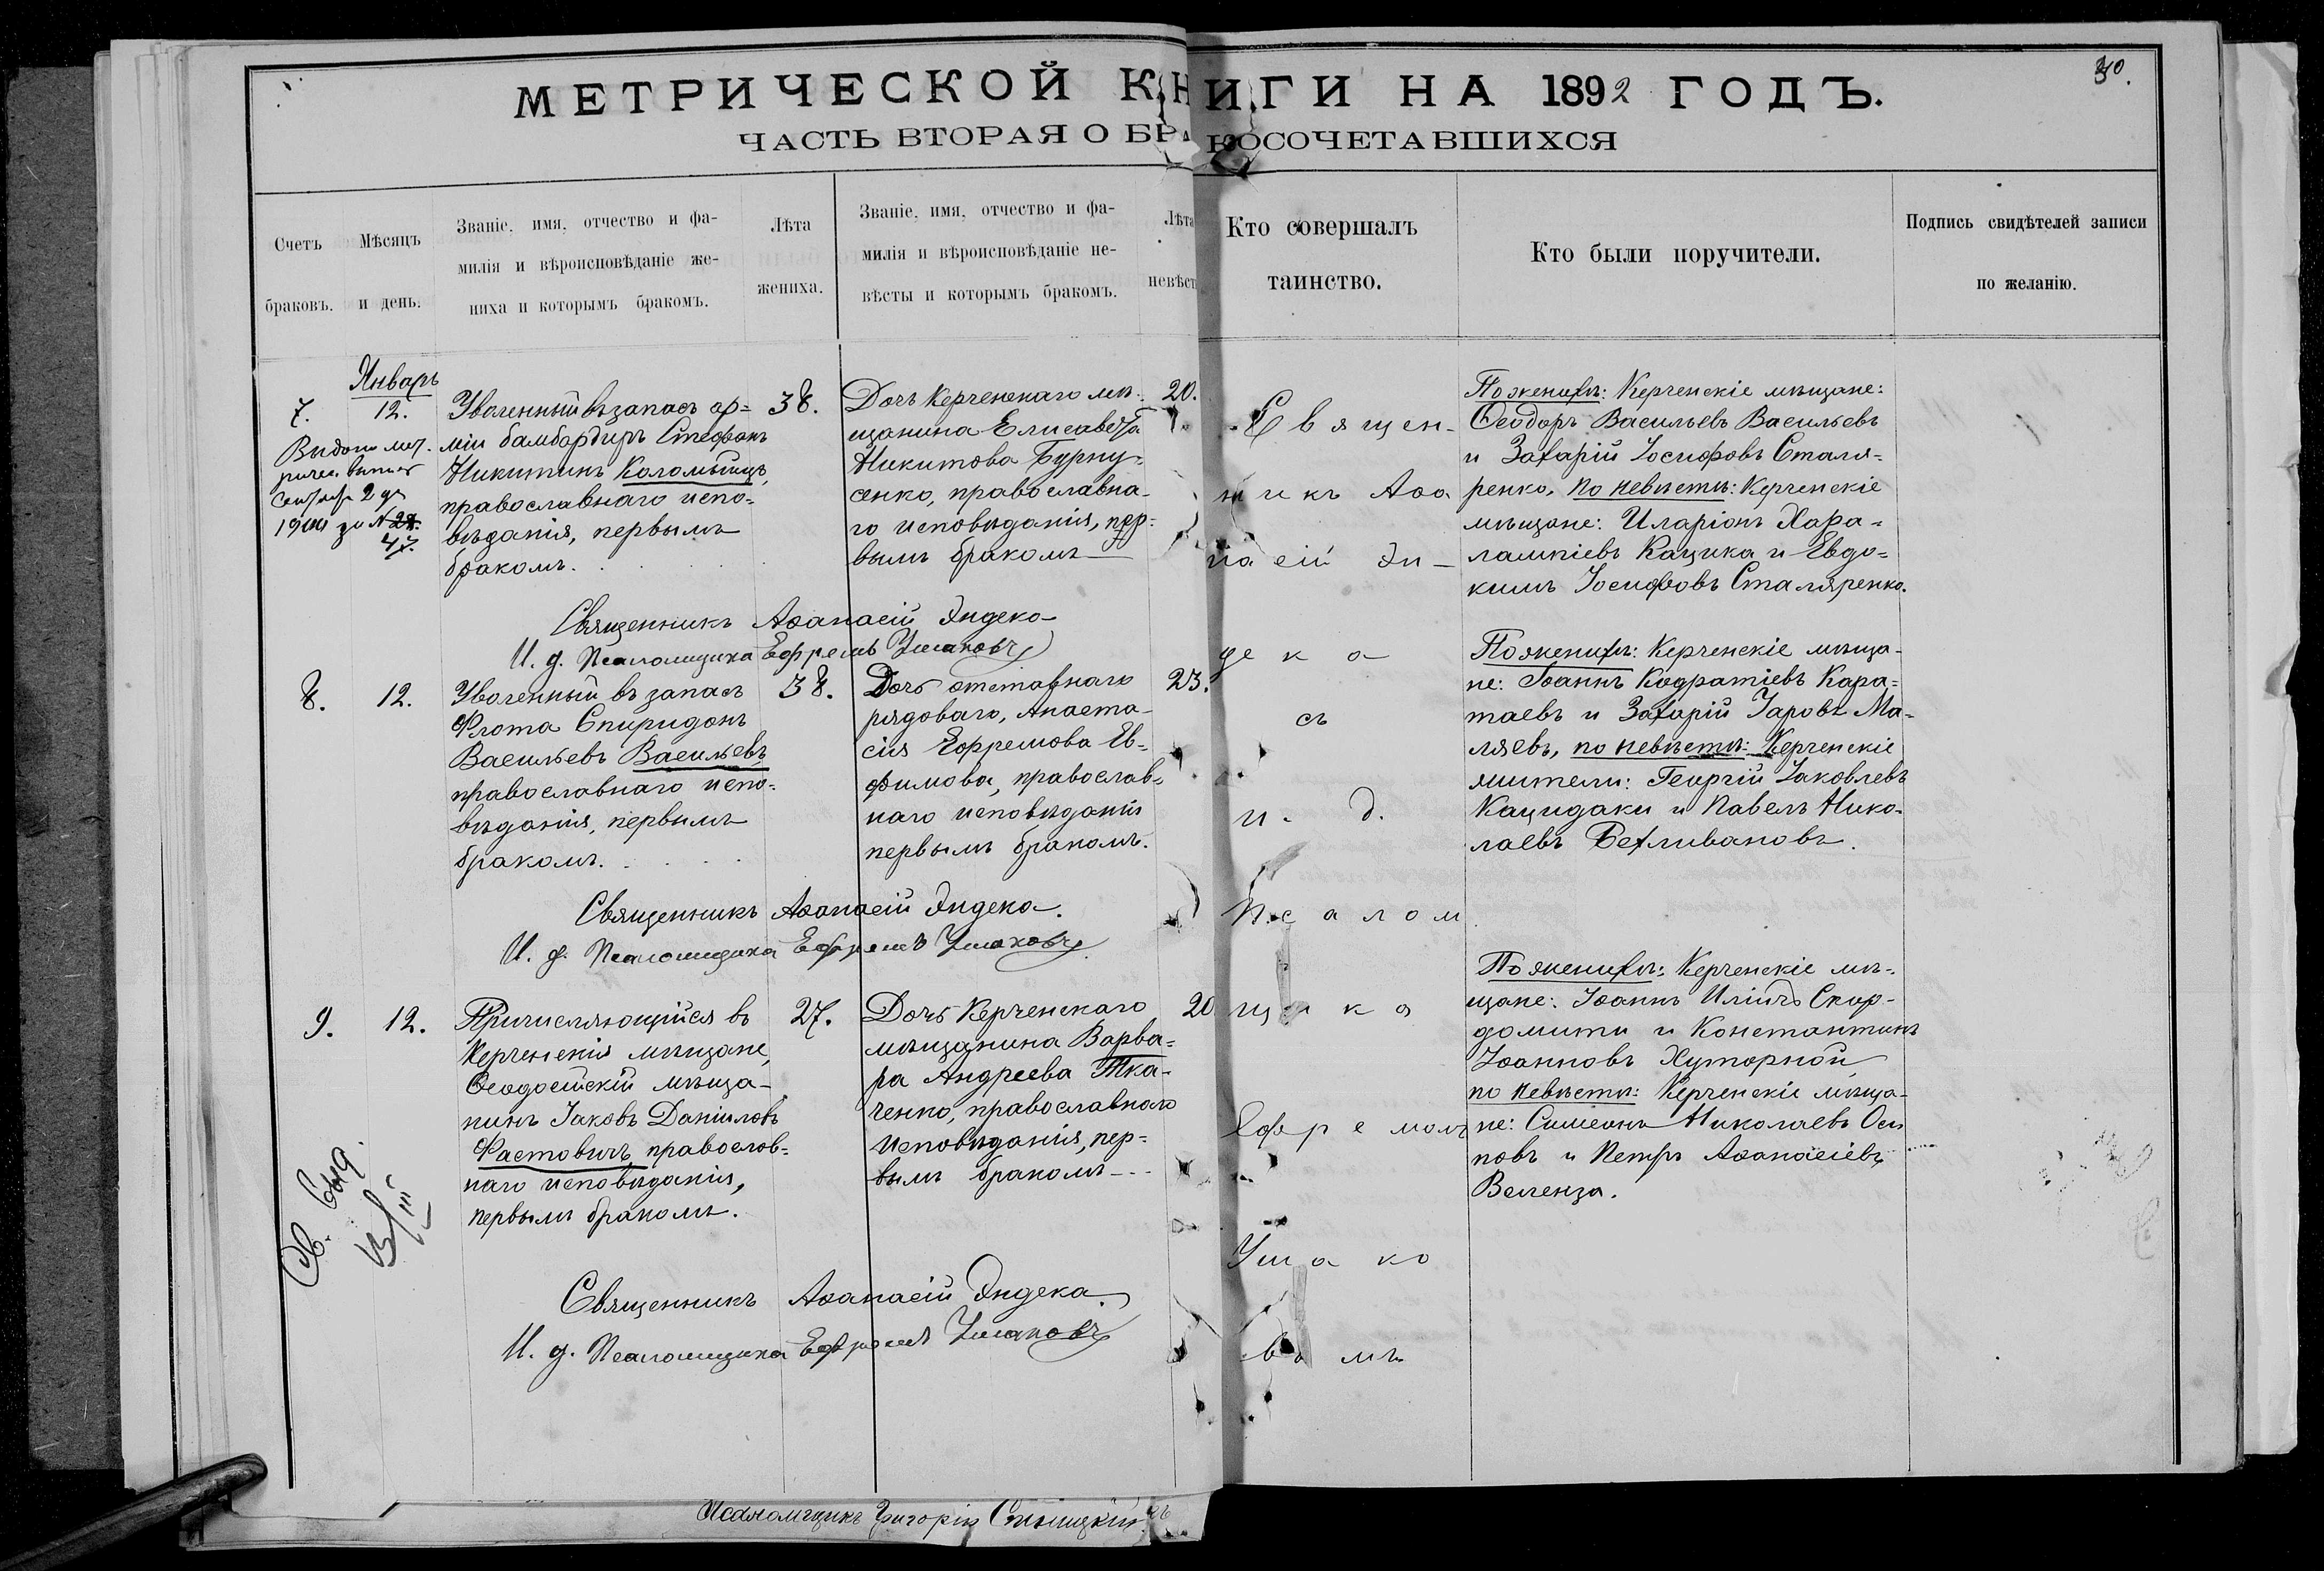 МЕТРИЧЕСКОЙ КНИГИ НА 1892 ГОДЪ.
30.
ЧАСТЬ ВТОРАЯ О БРАКОСОЧЕТАВШИХСЯ
Счетъ
браковъ.
Мѣсяцъ
и день.
Званіе, имя, отчество и фа-
милія и вѣроисповѣданіе же-
ниха и которымъ бракомъ.
Лѣта
жениха.
Званіе, имя, отчество и фа-
милія и вѣроисповѣданіе не-
вѣсты и которымъ бракомъ.
Лѣта
невѣст
Кто совершалъ
таинство.
Кто были поручители.
Подпись свидѣтелей записи
по желанію.
Январь
7.
12.
Уволенный въ запасъ ар=
міи бамбардиръ Стефанъ
Никитинъ Коломыецъ,
православнаго испо=
вѣданія, первымъ
бракомъ.
38.
Дочь Керченскаго мѣ-
щанина Елисавета
Никитова Бурну-
сенко, православна-
го исповѣданія, пер=
вымъ бракомъ
20.
По женихѣ: Керченскіе мѣщане:
Ѳеодоръ Васильевъ Васильевъ
и Захарій Іосифовъ Сталя=
ренко, по невѣстѣ: Керченскіе
мѣщане: Иларіонъ Хара=
лампіевъ Кацика и Евдо=
кимъ Іосифовъ Сталяренко.
1900 за № 28.
47.
Священникъ Аѳанасій Эндека
И. д. Псаломщика Ефремъ Ушаковъ
8.
12.
Уволенный въ запасъ
Флота Спиридонъ
Васильевъ Васильевъ
православнаго испо=
вѣданія, первымъ
бракомъ.
38.
Дочь отставнаго
рядоваго, Анаста-
сія Ефремова Ев=
фимова, православ=
наго исповѣданія
первымъ бракомъ.
23.
По женихѣ: Керченскіе мѣща-
не: Іоаннъ Кодратіевъ Кара=
таевъ и Захарій Іаровъ Ма=
ляевъ, по невѣстѣ: Керченскіе
жители: Георгій Іаковлевъ
Кацидаки и Павелъ Нико-
лаевъ Бехливановъ.
Священникъ Аѳанасій Эндека.
И. д. Псаломщика Ефремъ Ушаковъ
9.
12.
Причисляющійся въ
Керченскія мѣщане,
Ѳеодосійскій мѣща-
нинъ Іаковъ Даніиловъ
Фастовичъ православ=
наго исповѣданія,
первымъ бракомъ.
27.
Дочь Керченскаго
мѣщанина Варва=
ра Андреева Тка-
ченко, православнаго
исповѣданія, пер=
вымъ бракомъ
20
По женихѣ: Керченскіе мѣ-
щане: Іоаннъ Иліичъ Скор-
домити и Константинъ
Іоанновъ Хуторной,
по невѣстѣ: Керченскіе мѣща-
не: Симеонъ Николаевъ Оси
повъ и Петръ Аѳанасіевъ
Веленза.
Священникъ Аѳанасій Эндека.
И. д. Псаломщика Ефремъ Ушаковъ
Священ-
никъ Аѳа
насій Эн-
дека
съ
и. д.
Псалом
щика
Ефремомъ
Ушако
вымъ
Псаломщикъ Григорій